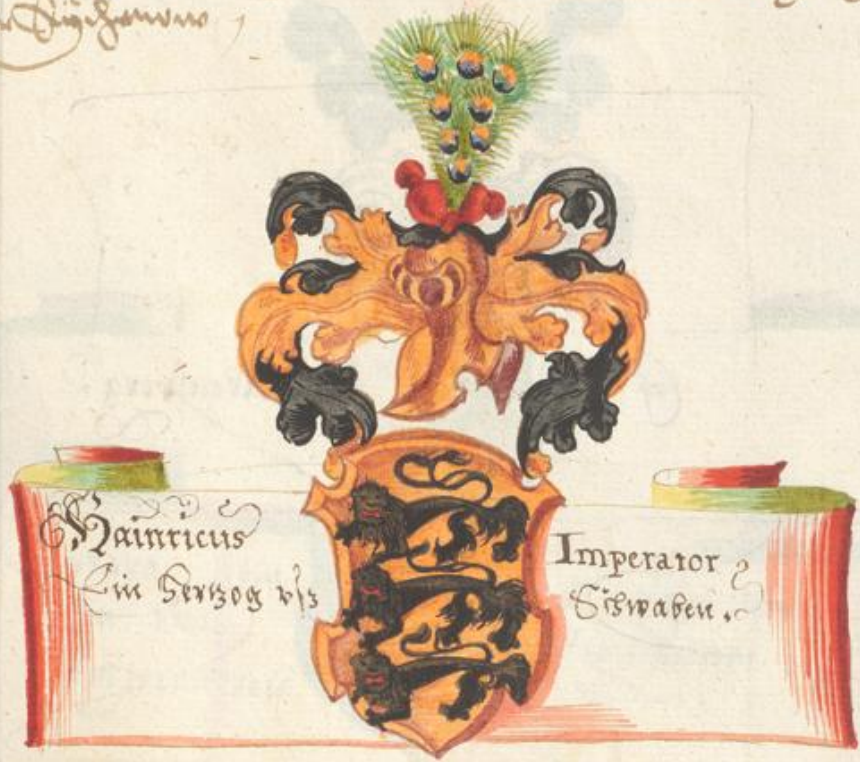 Hainricus Imperator
Ein Hertzog vsz Schwaben.